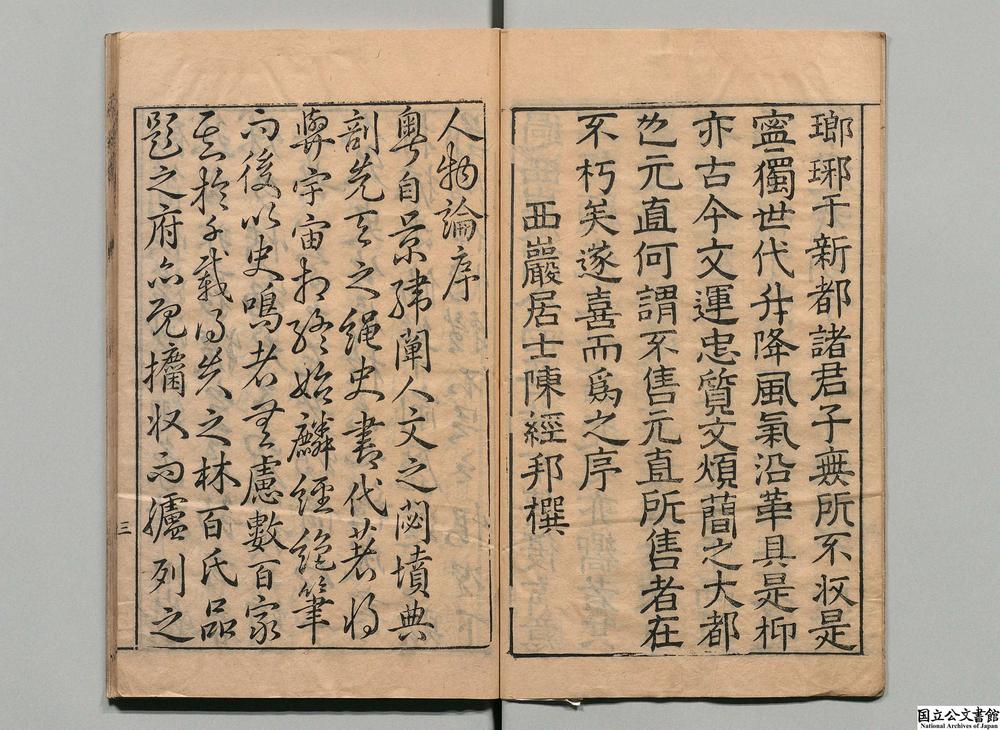 瑯琊于新都諸君子無所不収是
寧獨世代升降風氣沿革具是抑
亦古今文運忠質文煩蕳之大都
也元直何謂不售元直所售者在
不朽矣遂喜而爲之序
西巖居士陳經邦撰
人物論序
粵自景緯闡人文之閟墳典
剖先天之繩史書代著將
與宇宙相終始麟經絶筆
而後以史鳴者無慮數百家
其於千載得失之林百氏品
題之府亦既攟収而臚列之
三
国立公文書館
National Archives of Japan